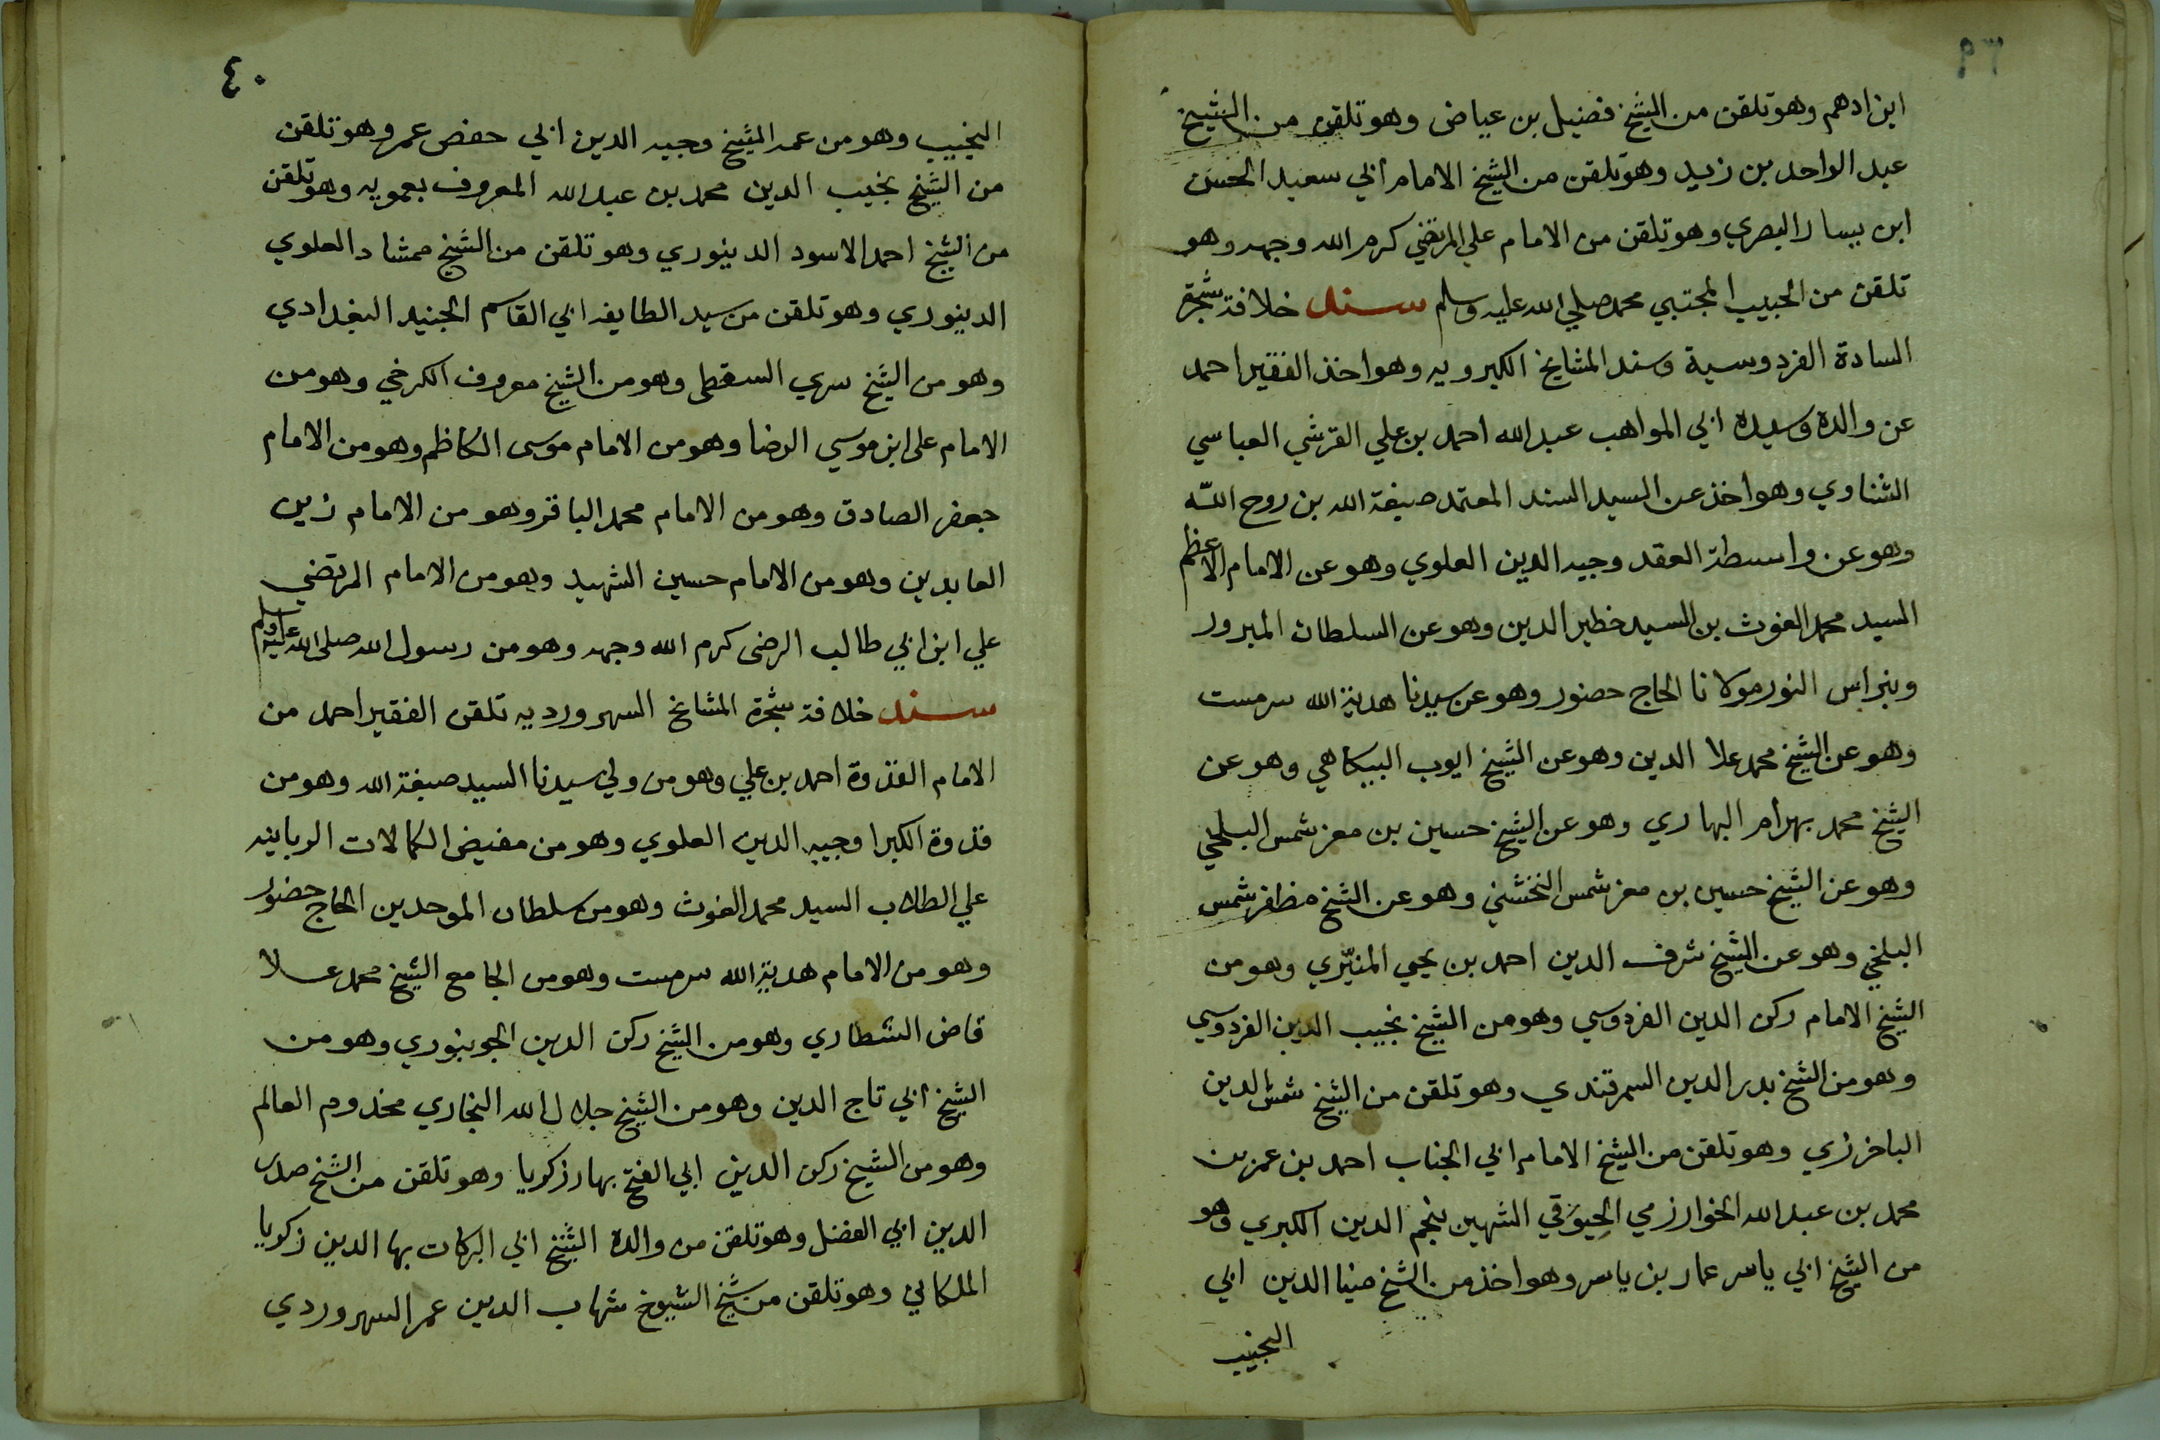 ٣٩
ابن ادهم وهو تلقن من الشيخ فضيل بن عياض وهو تلقن من الشيخ
عبد الواحد بن زيد وهو تلقن من الشيخ الامام ابي سعيد الحسن
ابن يسار البصري وهو تلقن من الامام علي المرتضي كرم الله وجهه وهو
تلقن من الحبيب المجتبي محمد صلي الله عليه وسلم سند خلافة شجرة
السادة الفردوسية وسند المشايخ الكبرويه وهو اخذ الفقير احمد
عن والده وسيده ابي المواهب عبد الله احمد بن علي القرشي العباسي
الشناوي وهو اخذ عن السيد السند المعتمد صبغة الله بن روح الله
وهو عن واسطة العقد وجيه الدين العلوي وهو عن الامام الاعظم
السيد محمد الغوث بن السيد خطير الدين وهو عن السلطان المبرور
ونبراس النور مولانا الحاج حضور وهو عن سيدنا هدية الله سرمست
وهو عن الشيخ محمد علا الدين وهو عن الشيخ ايوب البيكاهي وهو عن
الشيخ محمد بهرام البهاري وهو عن الشيخ حسين بن معز شمس البلخي
وهو عن الشيخ حسين بن معز شمس النخشني وهو عن الشيخ مظفر شمس
البلخي وهو عن الشيخ شرف الدين احمد بن يحيي المنيّري وهو من
الشيخ الامام ركن الدين الفردوسي وهو من الشيخ نجيب الدين الفردوسي
وهو من الشيخ بدر الدين السمرقندي وهو تلقن من الشيخ شمس الدين
الباخرزي وهو تلقن من الشيخ الامام ابي الجناب احمد بن عمر بن
محمد بن عبد الله الخوارزمي الحيوقي الشهير بنجم الدين الكبري وهو
من الشيخ ابي ياسر عمار بن ياسر وهو اخذ من الشيخ ضيا الدين ابي
النجيب
٤٠
النجيب وهو من عمه الشيخ وجيه الدين ابي حفص عمر وهو تلقن
من الشيخ نجيب الدين محمد بن عبد الله المعروف بعمويه وهو تلقن
من الشيخ احمد الاسود الدينوري وهو تلقن من الشيخ ممشاد العلوي
الدينوري وهو تلقن من سيد الطايفه ابي القاسم الجنيد البغدادي
وهو من الشيخ سري السقطي وهو من الشيخ معروف الكرخي وهو من
الامام علي ابن موسي الرضا وهو من الامام موسى الكاظم وهو من الامام
جعفر الصادق وهو من الامام محمد الباقر وهو من الامام زين
العابدين وهو من الامام حسين الشهيد وهو من الامام المرتضي
علي ابن ابي طالب الرضى كرم الله وجهه وهو من رسول الله صلى الله عليه وسلم
سند خلافة شجرة المشايخ السهرورديه تلقن الفقير احمد من
الامام القدوة احمد بن علي وهو من ولي سيدنا السيد صبغة الله وهو من
قدوة الكبرا وجيه الدين العلوي وهو من مفيض الكمالات الربانيه
علي الطلاب السيد محمد الغوث وهو من سلطان الموحدين الحاج حضور
وهو من الامام هدية الله سرمست وهو من الجامع الشيخ محمد علا
قاض الشطاري وهو من الشيخ ركن الدين الجونبوري وهو من
الشيخ ابي تاج الدين وهو من الشيخ جلال الله البخاري مخدوم العالم
وهو من الشيخ ركن الدين ابي الفتح بهار زكريا وهو تلقن من الشيخ صدر
الدين ابي الفضل وهو تلقن من والده الشيخ ابي البركات بها الدين زكريا
الملكاني وهو تلقن من شيخ الشيوخ شهاب الدين عمر السهروردي